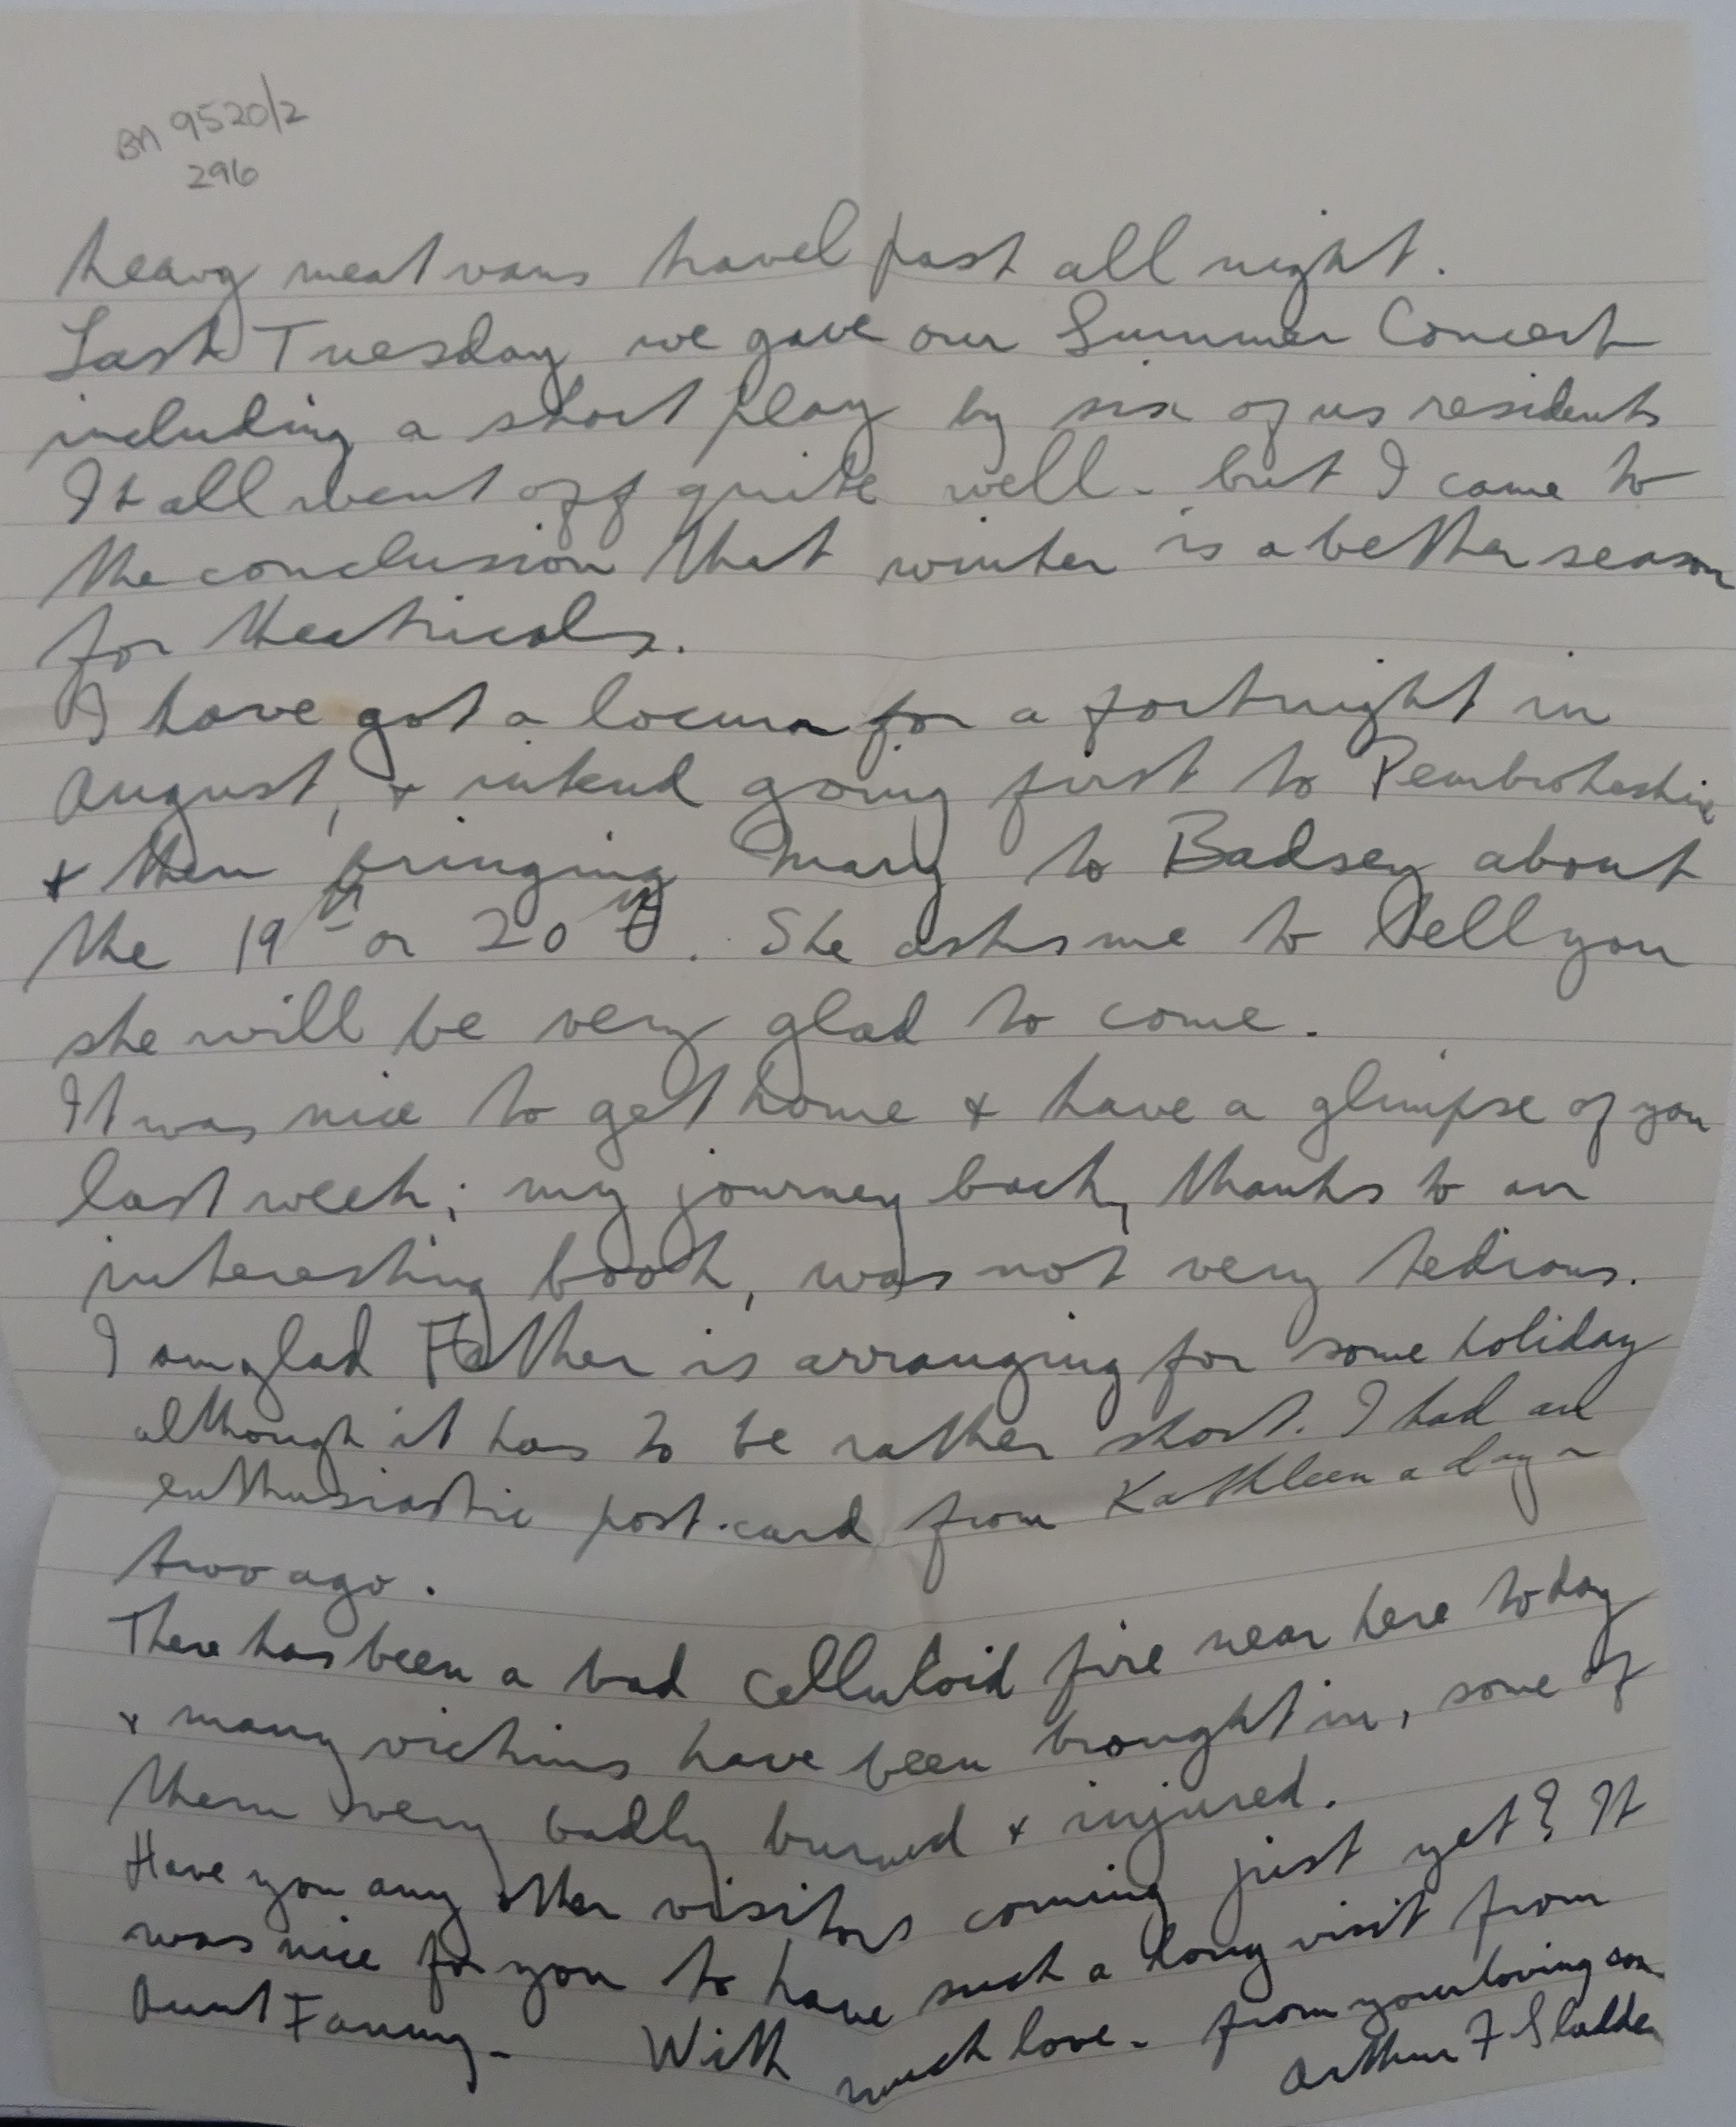 BA 9520/2
296
heavy meat vans travel past all night.
Last Tuesday we gave our Summer Concert
including a short play by six of us residents
It all went off quite well - but I came to
the conclusion that winter is a better season
for theatricals.
I have got a locum for a fortnight in
August, + intend going first to Pembrokeshire
+ then bringing Mary to Badsey about
the 19th or 20th. She asks me to tell you
she will be very glad to come.
It was nice to get home + have a glimpse of you
last week; my journey back, thanks to an
interesting book, was not very tedious.
I am glad Father is arranging for some holiday
although it has to be rather short. I had an
enthusiastic post-card from Kathleen a day or
two ago.
There has been a bad celluloid fire near here today
+ many victims have been brought in, some of
them very badly burned + injured.
Have you any other visitors coming just yet? It
was nice for you to have such a long visit from
Aunt Fanny - With much love - from your loving son
Arthur F Sladden